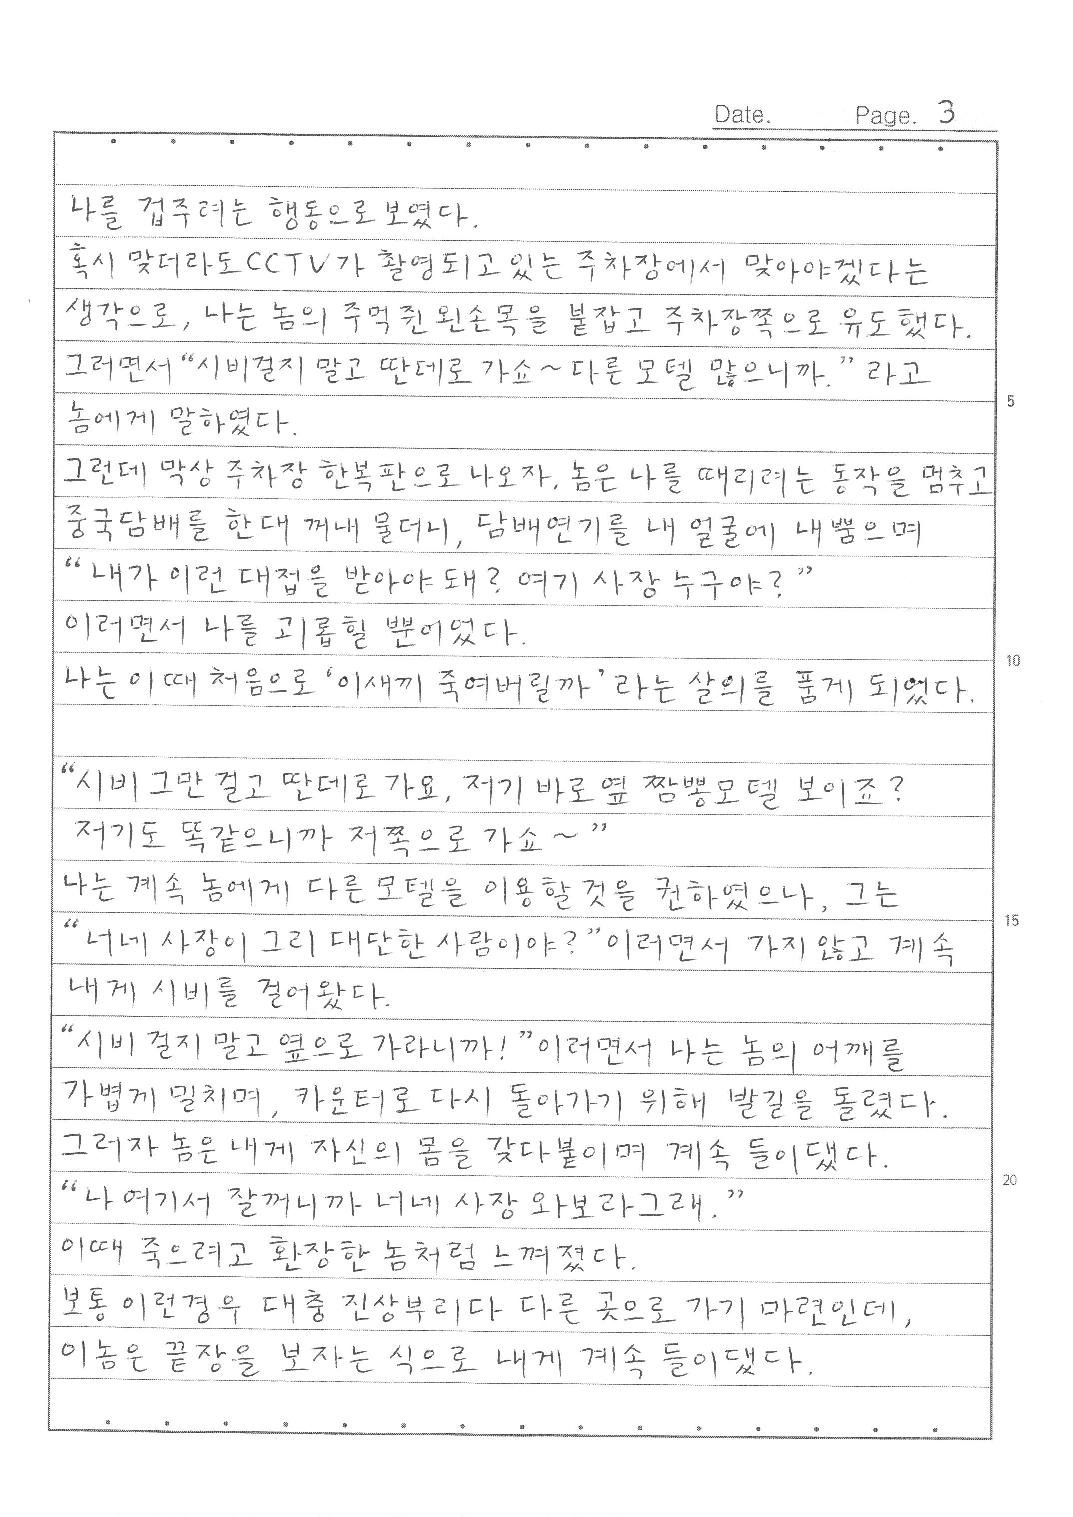 Date. Page. 3
나를 겁주려는 행동으로 보였다.
혹시 맞더라도 CCTV가 촬영되고 있는 주차장에서 맞아야겠다는
생각으로, 나는 놈의 주먹쥔 왼손목을 붙잡고 주차장쪽으로 유도했다.
그러면서 “시비걸지 말고 딴데로 가쇼~ 다른 모텔 많으니까.” 라고
5
놈에게 말하였다.
그런데 막상 주차장 한복판으로 나오자, 놈은 나를 때리려는 동작을 멈추고
중국담배를 한대 꺼내 물더니, 담배연기를 내 얼굴에 내뿜으며
“내가 이런 대접을 받아야 돼? 여기 사장 누구야?”
이러면서 나를 괴롭힐 뿐이었다.
10
나는 이때 처음으로 ‘이새끼 죽여버릴까’ 라는 살의를 품게 되었다.
“시비 그만 걸고 딴데로 가요, 저기 바로 옆 짬뽕모텔 보이죠?
저기도 똑같으니까 저쪽으로 가쇼~”
나는 계속 놈에게 다른 모텔을 이용할 것을 권하였으나, 그는
15
“너네 사장이 그리 대단한 사람이야?” 이러면서 가지 않고 계속
내게 시비를 걸어왔다.
“시비 걸지 말고 옆으로 가라니까!” 이러면서 나는 놈의 어깨를
가볍게 밀치며, 카운터로 다시 돌아가기 위해 발길을 돌렸다.
그러자 놈은 내게 자신의 몸을 갖다붙이며 계속 들이댔다.
20
“나 여기서 잘꺼니까 너네 사장 와보라그래.”
이때 죽으려고 환장한 놈처럼 느껴졌다.
보통 이런경우 대충 진상부리다 다른 곳으로 가기 마련인데,
이놈은 끝장을 보자는 식으로 내게 계속 들이댔다.